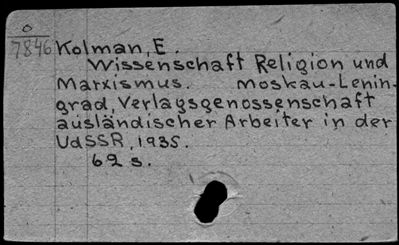 O
7846 Kolman, E.
Wissenschaft Religion und
Marxismus. Moskau-Lenin-
grad, Verlagsgenossenschaft
ausländischer Arbeiter in der
UdSSR, 1935.
62 s.